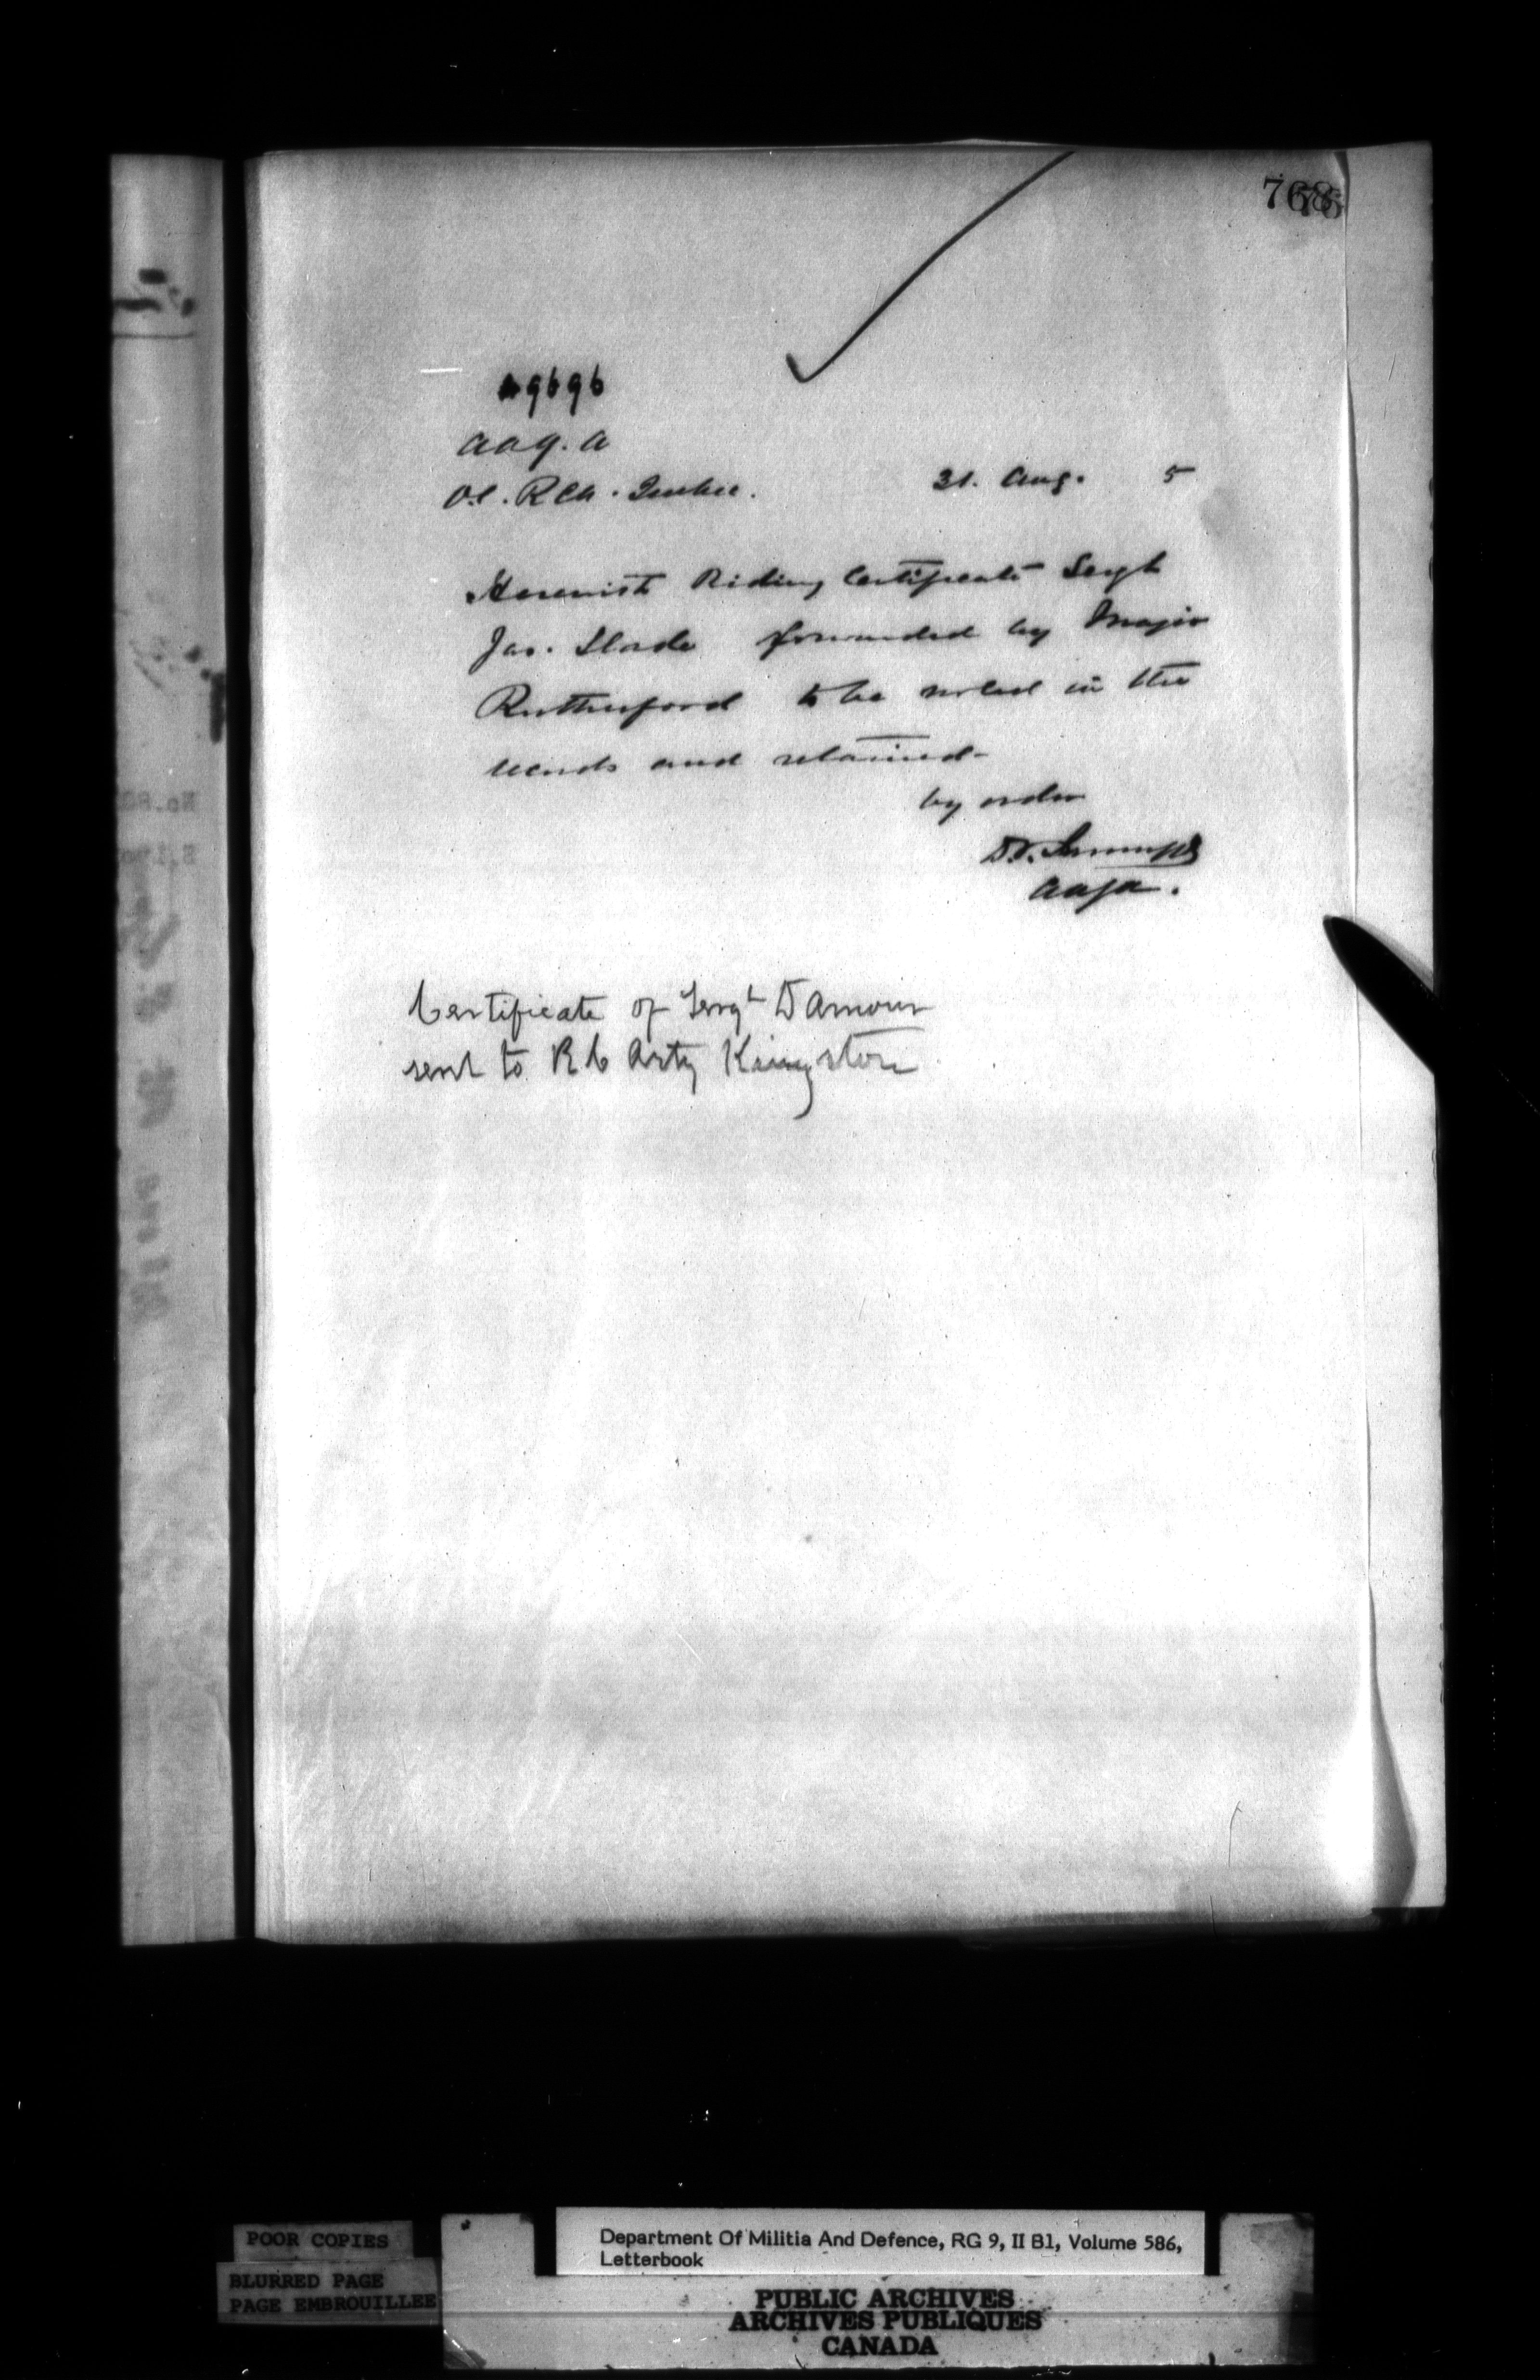 768
9696
a a g. a
O.C. R C A. Quebec. 31. Aug. 5
Herewith Riding Certificate Sergt
Jas. Slade forwarded by Major
Rutherford to be noted in the
records and retained-
by order
a a g a.
Certificate of Sergt D'Amour
sent to R C Arty Kingston
POOR COPIES
BLURRED PAGE
PAGE EMBROUILLEE
Department Of Militia And Defence, RG 9, II B1, Volume 586,
Letterbook
PUBLIC ARCHIVES
ARCHIVES PUBLIQUES
CANADA